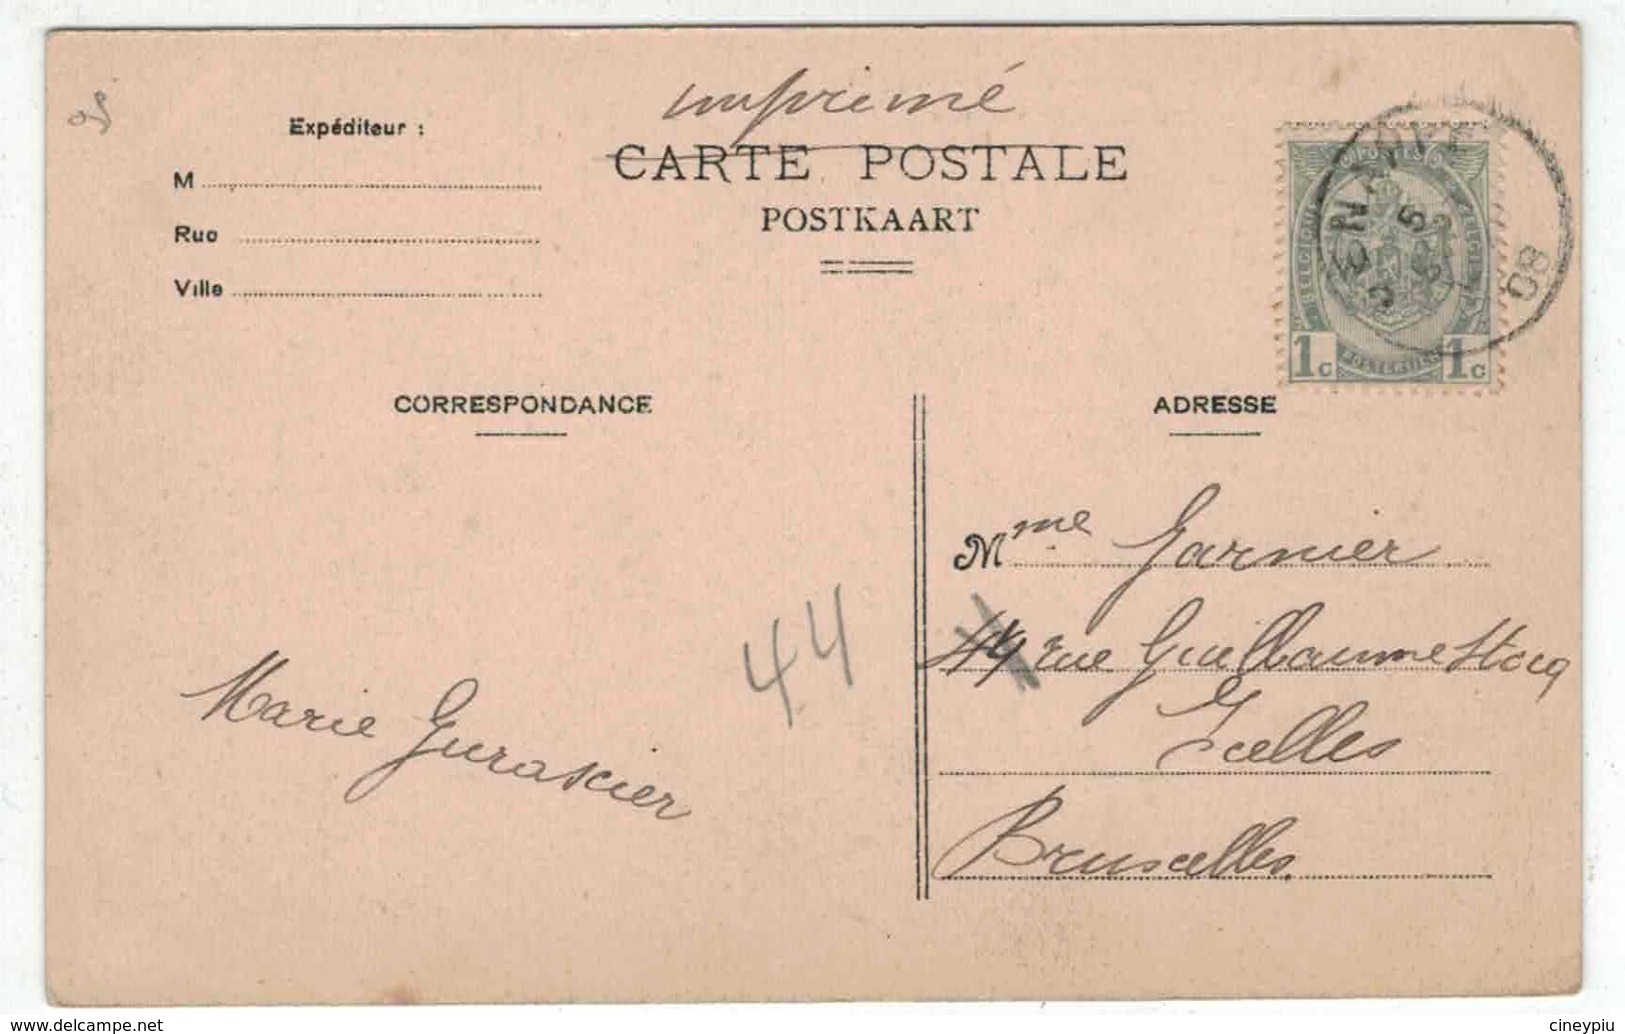 imprimé
Expéditeur :
CARTE POSTALE
POSTKAART
M
Rue
Ville
08
1c 1c
CORRESPONDANCE
ADRESSE
Mme Garnier
rue Guillaume Stocq
Ixelles
Bruxelles
44
Marie
delcampe.net
cineypiu